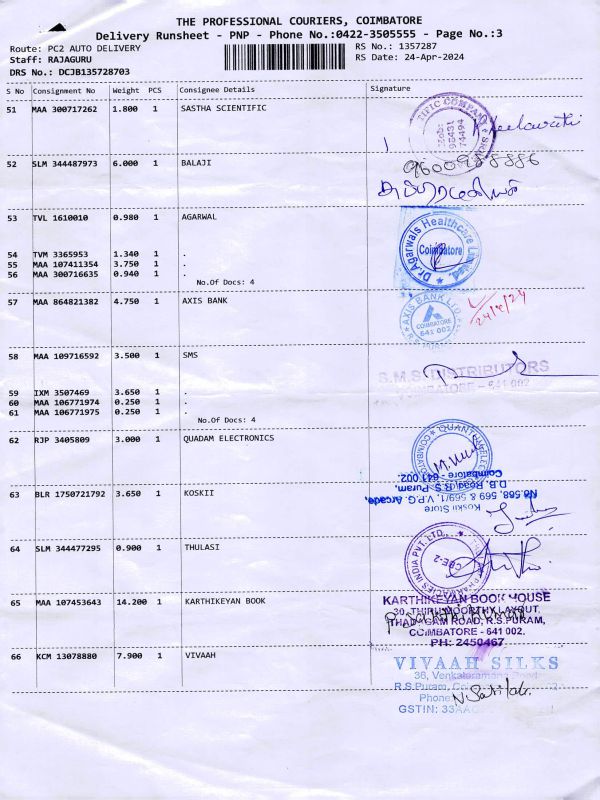 THE PROFESSIONAL COURIERS, COIMBATORE
Delivery Runsheet - PNP - Phone No.:0422-3505555 - Page No.:3
Route: PC2 AUTO DELIVERY
RS No.: 1357287
Staff: RAJAGURU
RS Date: 24-Apr-2024
DRS No.: DCJB135728703
S No Consignment No Weight PCS Consignee Details Signature
51 MAA 300717262 1.800 1 SASTHA SCIENTIFIC
52 SLM 344487973 6.000 1 BALAJI
9600988886
53 TVL 1610010 0.980 1 AGARWAL
Dr.Agarwals Healthcare Limited.
Coimbatore
54 TVM 3365953 1.340 1 .
55 MAA 107411354 3.750 1 .
56 MAA 300716635 0.940 1 .
No.Of Docs: 4
57 MAA 864821382 4.750 1 AXIS BANK
AXIS BANK LTD
COIMBATORE
641 002
24/4/24
58 MAA 109716592 3.500 1 SMS
S.M.S. DISTRIBUTORS
COIMBATORE - 641 002
59 IXM 3507469 3.650 1 .
60 MAA 106771974 0.250 1 .
61 MAA 106771975 0.250 1 .
No.Of Docs: 4
62 RJP 3405809 3.000 1 QUADAM ELECTRONICS
63 BLR 1750721792 3.650 1 KOSKII
Koskii Store
No.568, 569 & 569/1, V.P.G. Arcade,
D.B. Road, R.S. Puram,
Coimbatore - 641 002.
64 SLM 344477295 0.900 1 THULASI
CBE-2
65 MAA 107453643 14.200 1 KARTHIKEYAN BOOK
KARTHIKEYAN BOOK HOUSE
30, THIRUMOORTHY LAYOUT,
THADAGAM ROAD, R.S.PURAM,
COIMBATORE - 641 002.
PH: 2450467
66 KCM 13078880 7.900 1 VIVAAH
VIVAAH SILKS
36, Venkataramana Road
R.S.Puram,
Phone
GSTIN: